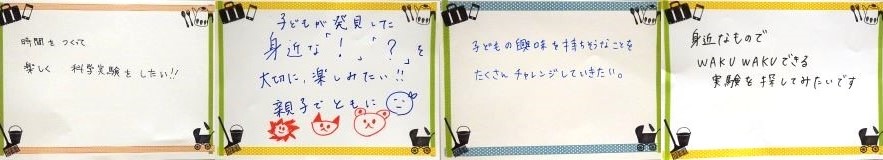 時間をつくって
楽しく 科学実験をしたい!!
子どもが発見した
身近な「!」「?」を
大切に、楽しみたい!!
親子でともに
子どもの興味を持ちそうなことを
たくさんチャレンジしていきたい。
身近なもので
WAKU WAKUできる
実験を探してみたいです